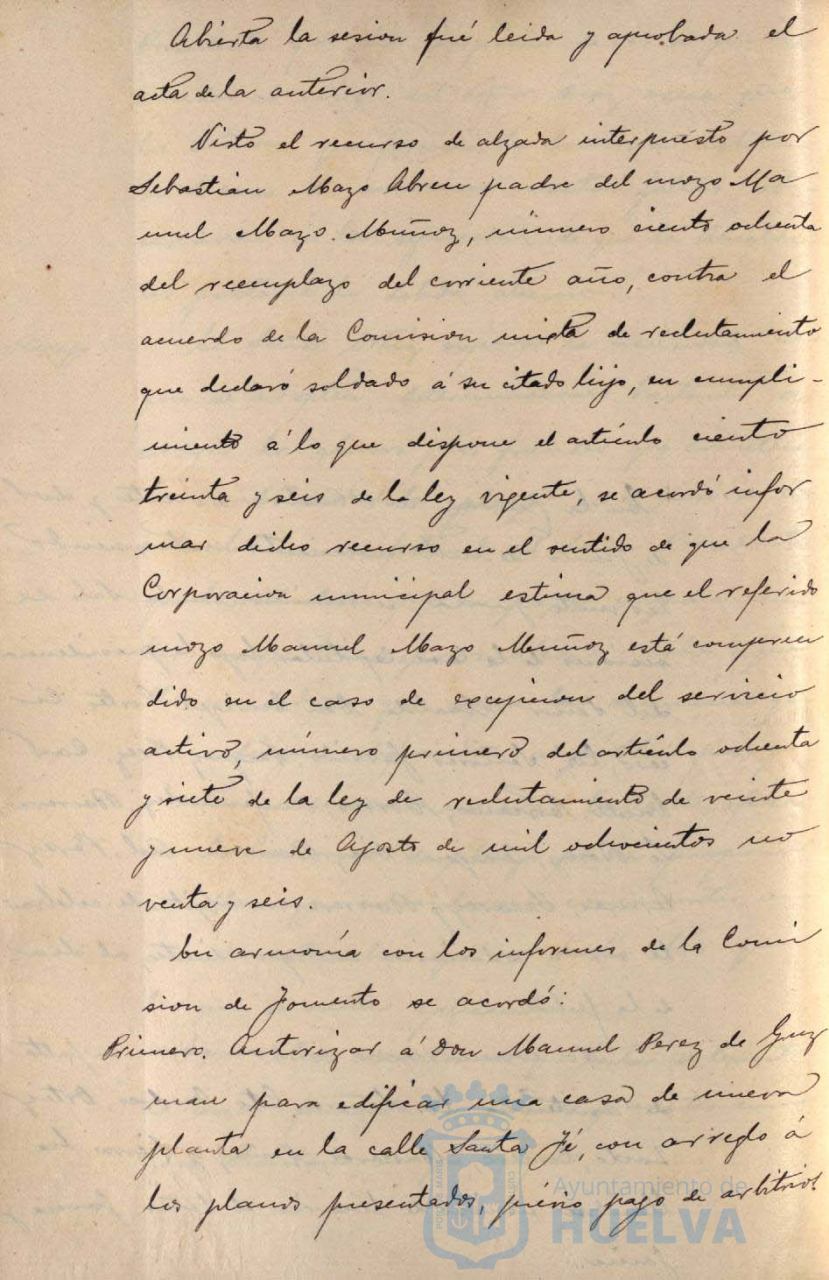 Abierta la sesion fué leida y aprobada el
acta de la anterior.
Visto el recurso de alzada interpuesto por
Sebastián Mazo Abreu padre del mozo Ma
nuel Mazo Muñoz, número ciento ochenta
del reemplazo del corriente año, contra el
acuerdo de la Comision mixta de reclutamiento
que declaró soldado á su citado hijo, en cumpli-
miento á lo que dispone el artículo ciento
treinta y seis de la ley vigente, se acordó infor
mar dicho recurso en el sentido de que la
Corporacion municipal estima que el referido
mozo Manuel Mazo Muñoz está compren
dido en el caso de excepcion del servicio
activo, número primero del artículo ochenta
y siete de la ley de reclutamiento de veinte
y nueve de Agosto de mil ochocientos no
venta y seis.
En armonía con los informes de la Comi
sion de Fomento se acordó:
Primero. Autorizar á Don Manuel Perez de Guz
man para edificar una casa de nueva
planta en la calle Santa Fé, con arreglo á
los planos presentados, prévio pago de arbitrios
Ayuntamiento de
HUELVA